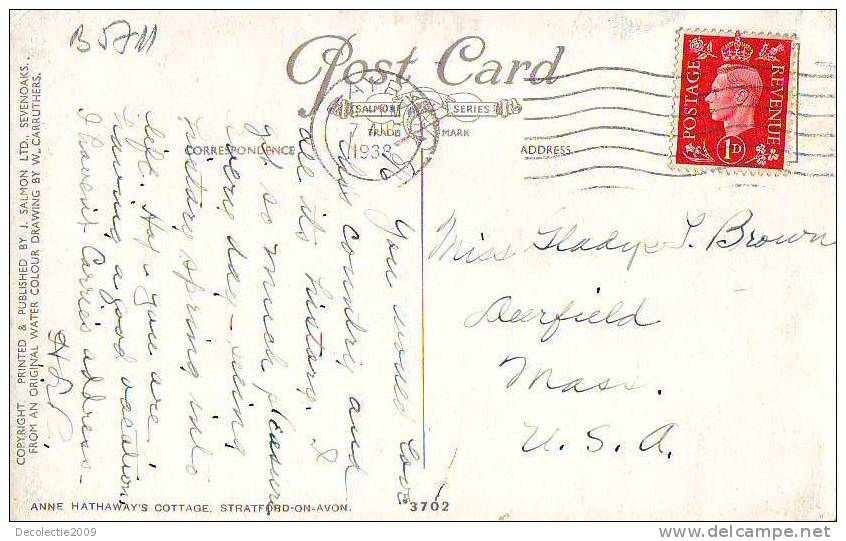 B 5711
Post Card
SALMON SERIES
TRADE MARK
CORRESPONDENCE
ADDRESS
1938
POSTAGE
REVENUE
1D
You would love
this country and
all its history. I
get so much pleasure
every day - seeing
history spring into
life. Hope you are
having a good vacation.
I haven't Carries address -
Miss Gladys L. Brown
Deerfield
Mass.
U. S. A.
COPYRIGHT. PRINTED & PUBLISHED BY J. SALMON LTD., SEVENOAKS.
FROM AN ORIGINAL WATER COLOUR DRAWING BY W. CARRUTHERS.
ANNE HATHAWAY'S COTTAGE, STRATFORD-ON-AVON.
3702
Decolectie2009
delcampe.net